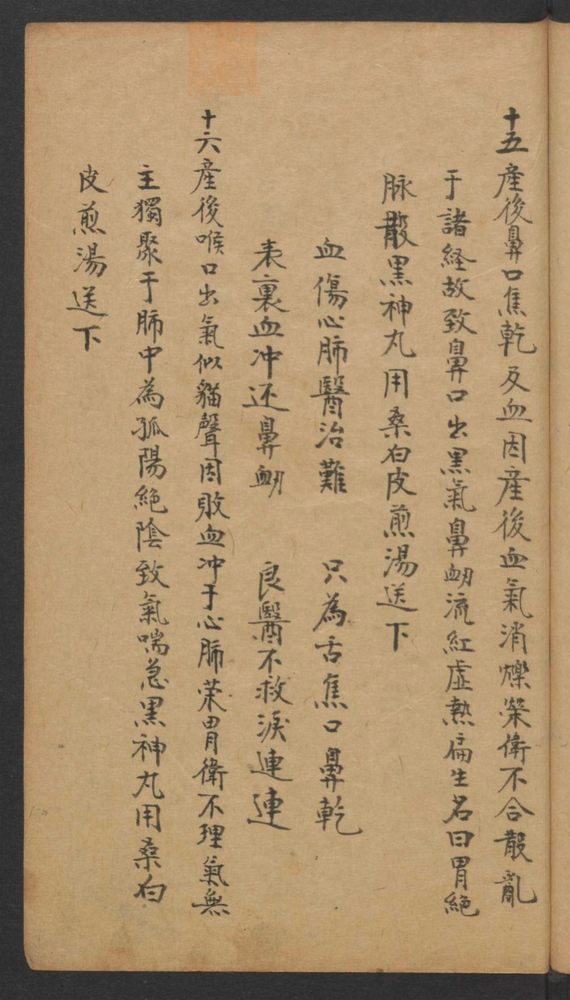 十五産後鼻口焦乾及血因産後血氣消爍榮衛不合散亂
于諸経故致鼻口出黒氣鼻衂流紅虛熱扁生名曰胃絶
脉散黒神丸用桑白皮煎湯送下
血傷心肺醫治難 只為舌焦口鼻乾
表裏血冲还鼻衂 良醫不救淚連連
十六産後喉口出氣似貓聲因敗血冲于心肺荣胃衛不理氣無
主獨聚于肺中為孤陽絶陰致氣喘急黒神丸用桑白
皮煎湯送下